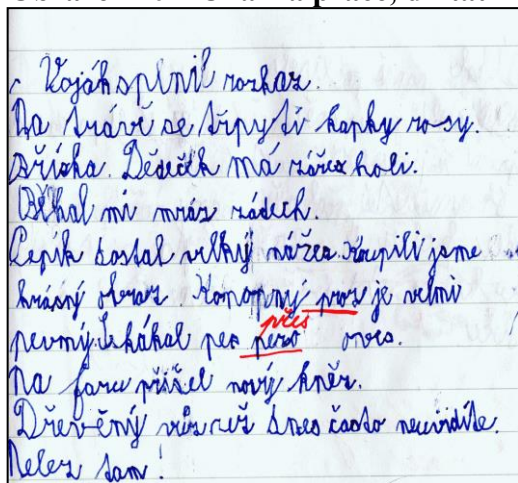 Voják splnil rozkaz.
Na trávě se třpytí kapky ro-sy.
Dědeček má zářez holi.
Běhal mi mráz zádech.
Pepík dostal velký nářez. Koupili jsme
krásný obraz Konopný proz je velmi
přes
pevný. Skákal pes oves.
Na faru přišel nový kněz.
Dřevěný vůz už dnes často neuvidíte.
Nelez tam!